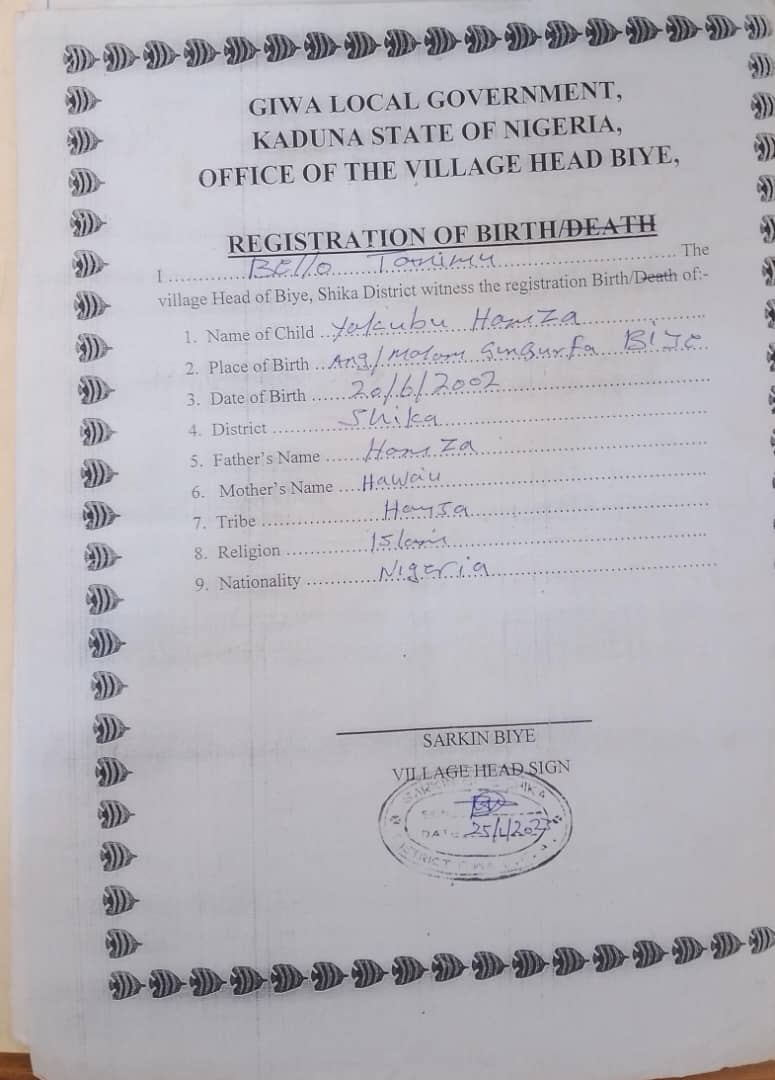 GIWA LOCAL GOVERNMENT,
KADUNA STATE OF NIGERIA,
OFFICE OF THE VILLAGE HEAD BIYE,
REGISTRATION OF BIRTH/DEATH
I .............. Bello Tanimu .............................. The
village Head of Biye, Shika District witness the registration Birth/Death of:-
1. Name of Child ..Yakubu Hamza....................
2. Place of Birth ..Ang/Malam Biye..
3. Date of Birth ......20/6/2002..............................
4. District ............Shika........................................
5. Father's Name ......Hamza....................................
6. Mother's Name ....Hawa'u........................................
7. Tribe .....................Hausa....................................
8. Religion ..............Islam........................................
9. Nationality ............Nigeria....................................
SARKIN BIYE
VILLAGE HEAD SIGN
SARKIN SHIKA
DATE
DISTRICT